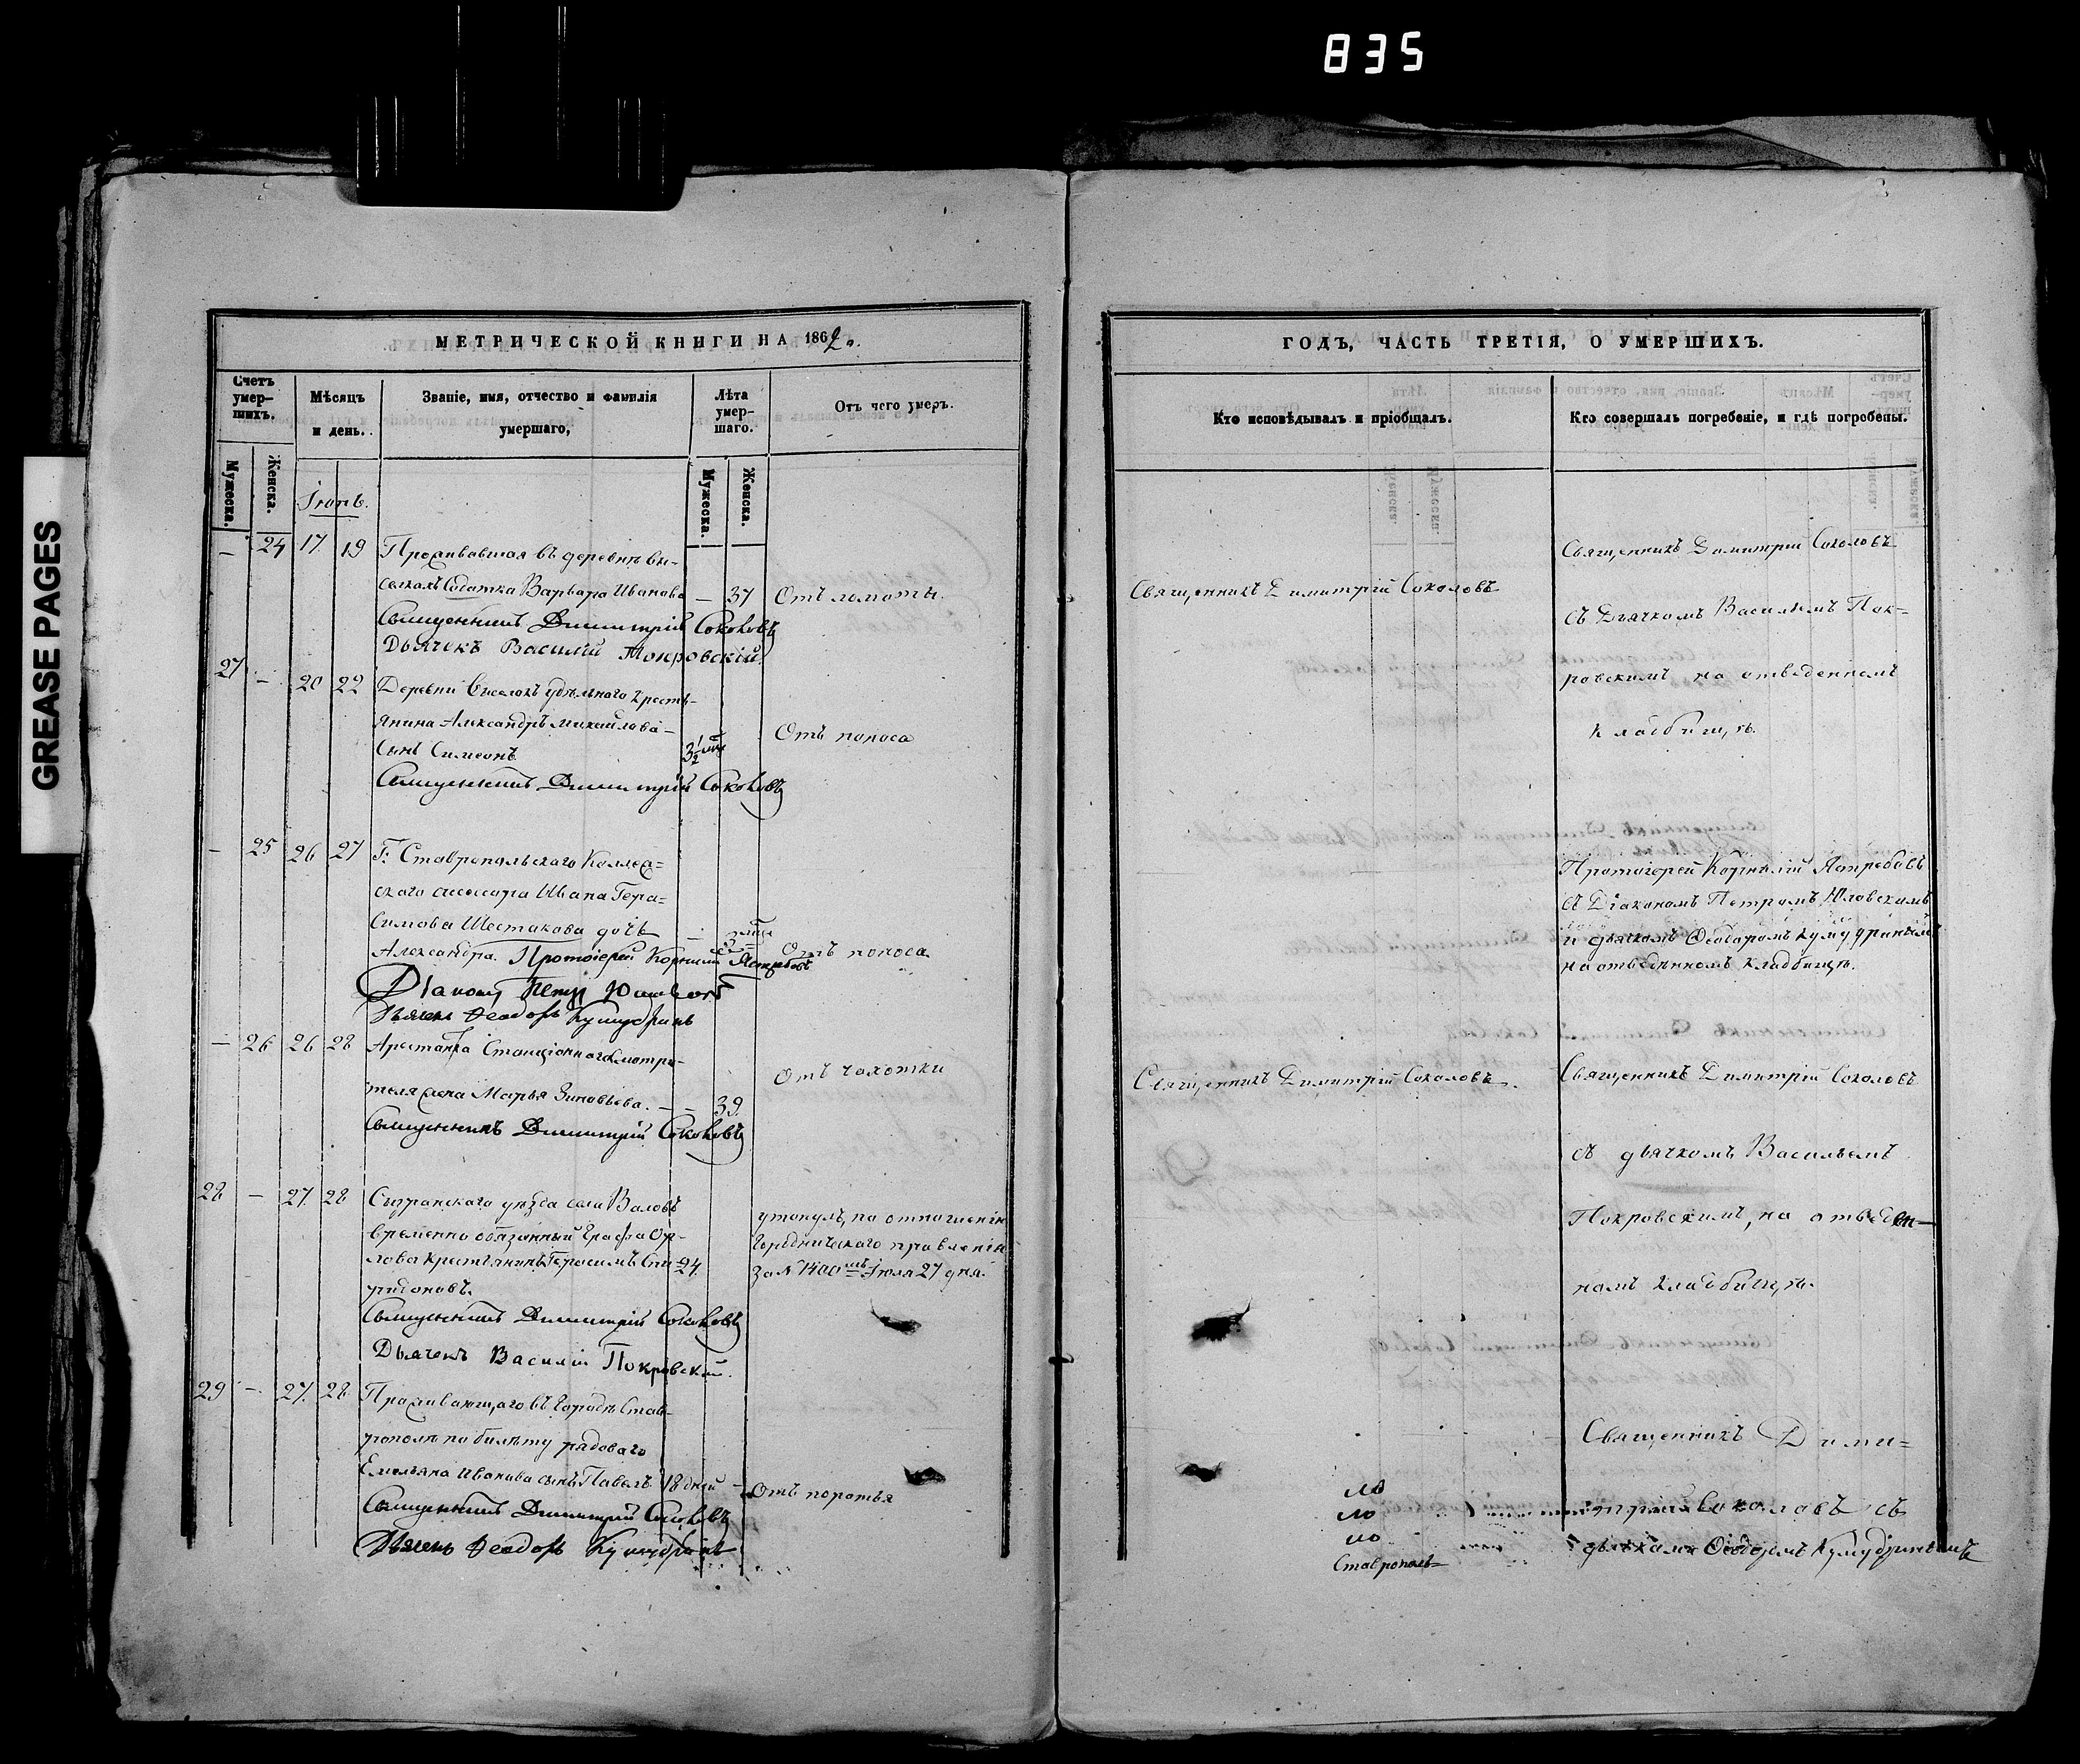 835
GREASE PAGES
МЕТРИЧЕСКОЙ КНИГИ НА 1862
Счетъ умер-шихъ.
Мужеска.
Женска.
Мѣсяцъ и день.
Званіе, имя, отчество и фамилія умершаго,
Лѣта умер-шаго.
Мужеска.
Женска.
Отъ чего умеръ.
— 24 17 19 Проживавшая въ деревнѣ Вы-
Варвара Иванова — 37 Отъ ломоты.
Священникъ Димитрій Соколовъ
Дьячекъ Василій Покровскій
27 — 20 22 Деревни Выселокъ удѣльнаго кресть-
янина Александръ Михайлова
сынъ Симеонъ 3½ Отъ поноса
Священникъ Димитрій Соколовъ
— 25 26 27 Г. Ставропольскаго Коллеж=
скаго ассесора Ивана Гера=
симова Шестакова дочь
Александра. Протоіерей Корнилій Ястребовъ Отъ поноса.
Діаконъ Петръ
Дьячекъ Феодоръ Кумудринъ
— 26 26 28 Арестантка Станціоннаго смотри-
теля жена Марья Зиновьева. — 39. Отъ чахотки
Священникъ Димитрій Соколовъ
28 — 27 28 Сызранскаго уѣзда села Валовъ
временно обязанный Графа Ор-
лова крестьянинъ Герасимъ Спи- 24
ридоновъ.
утонулъ, по отношенію
Городническаго правленія
за № 1400 Іюля 27 дня.
Священникъ Димитрій Соколовъ
Дьячекъ Василій Покровскій.
29 — 27 28 Проживающаго въ городѣ Став-
рополѣ по билету рядоваго
Емельяна Иванова сынъ Павелъ 18 дней — Отъ
Священникъ Димитрій Соколовъ
Дьячекъ Феодоръ Кумудринъ
ГОДЪ, ЧАСТЬ ТРЕТІЯ, О УМЕРШИХЪ.
Кто исповѣдывалъ и пріобщалъ.
Кто совершалъ погребеніе, и гдѣ погребены.
Священникъ Димитрій Соколовъ
Священникъ Димитрій Соколовъ
съ Дьячкомъ Васильемъ Пок-
ровскимъ на отведенномъ
кладбищѣ.
Протоіерей Корнилій Ястребовъ
съ Діакономъ Петромъ
и дьячкомъ Ѳеодоромъ Кумудринымъ
на отведенномъ кладбищѣ.
Священникъ Димитрій Соколовъ.
Священникъ Димитрій Соколовъ
съ дьячкомъ Васильемъ
Покровскимъ, на отведен-
номъ кладбищѣ.
Священникъ Дими=
трій Соколовъ съ
дьячкомъ Ѳеодоромъ Кумудринымъ
по
по
по
Ставрополь=